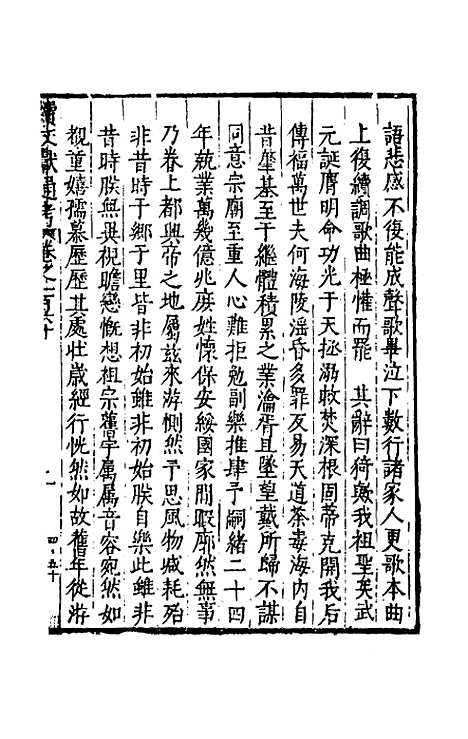 語悲感不復能成聲歌畢泣下數行諸家人更歌本曲
上復續調歌曲極懽而罷　其辭曰猗歟我祖聖矣武
元誕膺明命功光于天拯溺救焚深根固蒂克開我后
傳福萬世夫何海陵滛昏多罪反易天道荼毒海內自
昔肇基至于繼體積累之業淪胥且墜望戴所歸不謀
同意宗廟至重人心難拒勉副樂推肆予嗣緒二十四
年執業萬幾億兆庶姓懷保安綏國家閒暇廓然無事
乃眷上都興帝之地屬茲來游惻然予思風物減耗殆
非昔時于鄉于里皆非初始雖非初始朕自樂此雖非
昔時朕無異視瞻戀慨想祖宗舊宇屬屬音容宛然如
覩童嬉孺慕歷歷其處壯歲經行恍然如故舊年從游
續文獻通考卷之一百六十
四五十